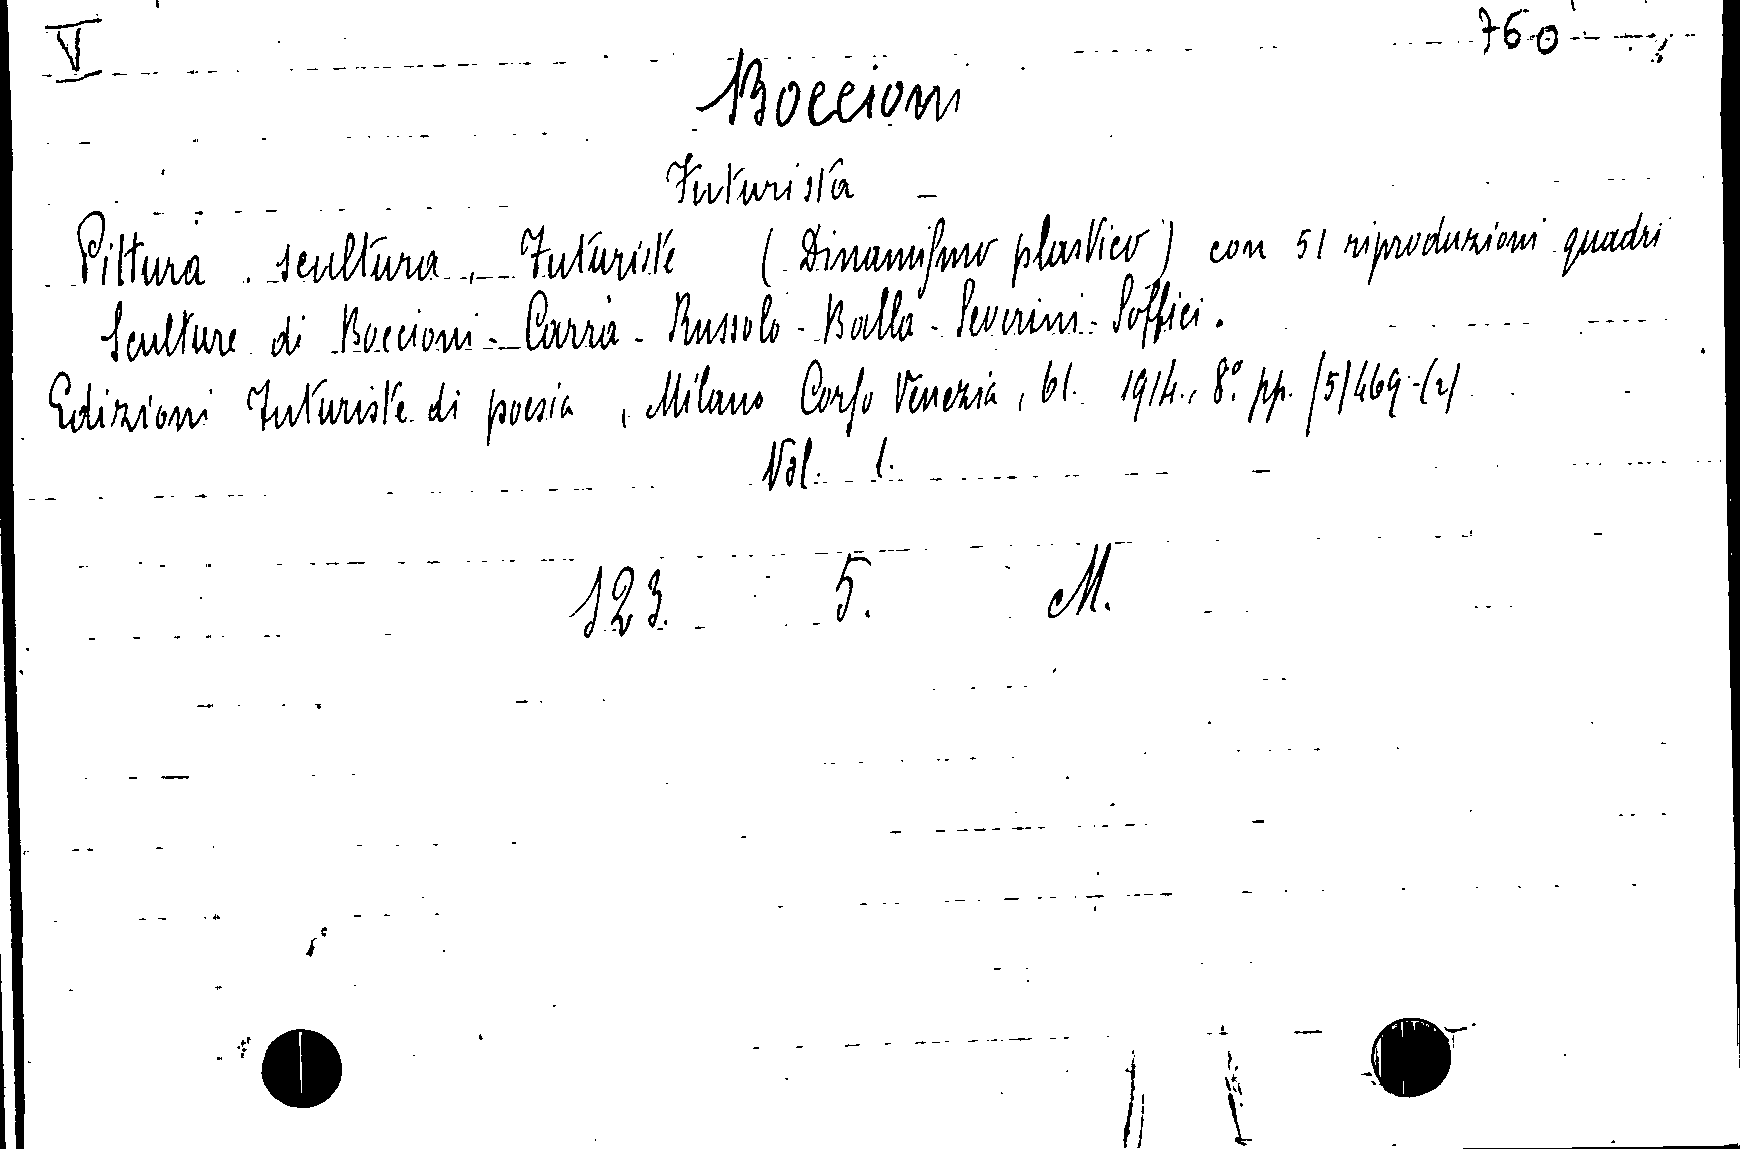 V 760
Boccioni
Futurista
Pittura. scultura, Futuriste (Dinamismo plastico) con 51 riproduzioni quadri
Sculture di Boccioni - Carrà - Russolo - Balla - Severini - Soffici.
Edizioni Futuriste di poesia, Milano Corso Venezia, 61. 1914., 8.° pp. /5/469-(2)
Vol. 1.
123. 5. M.